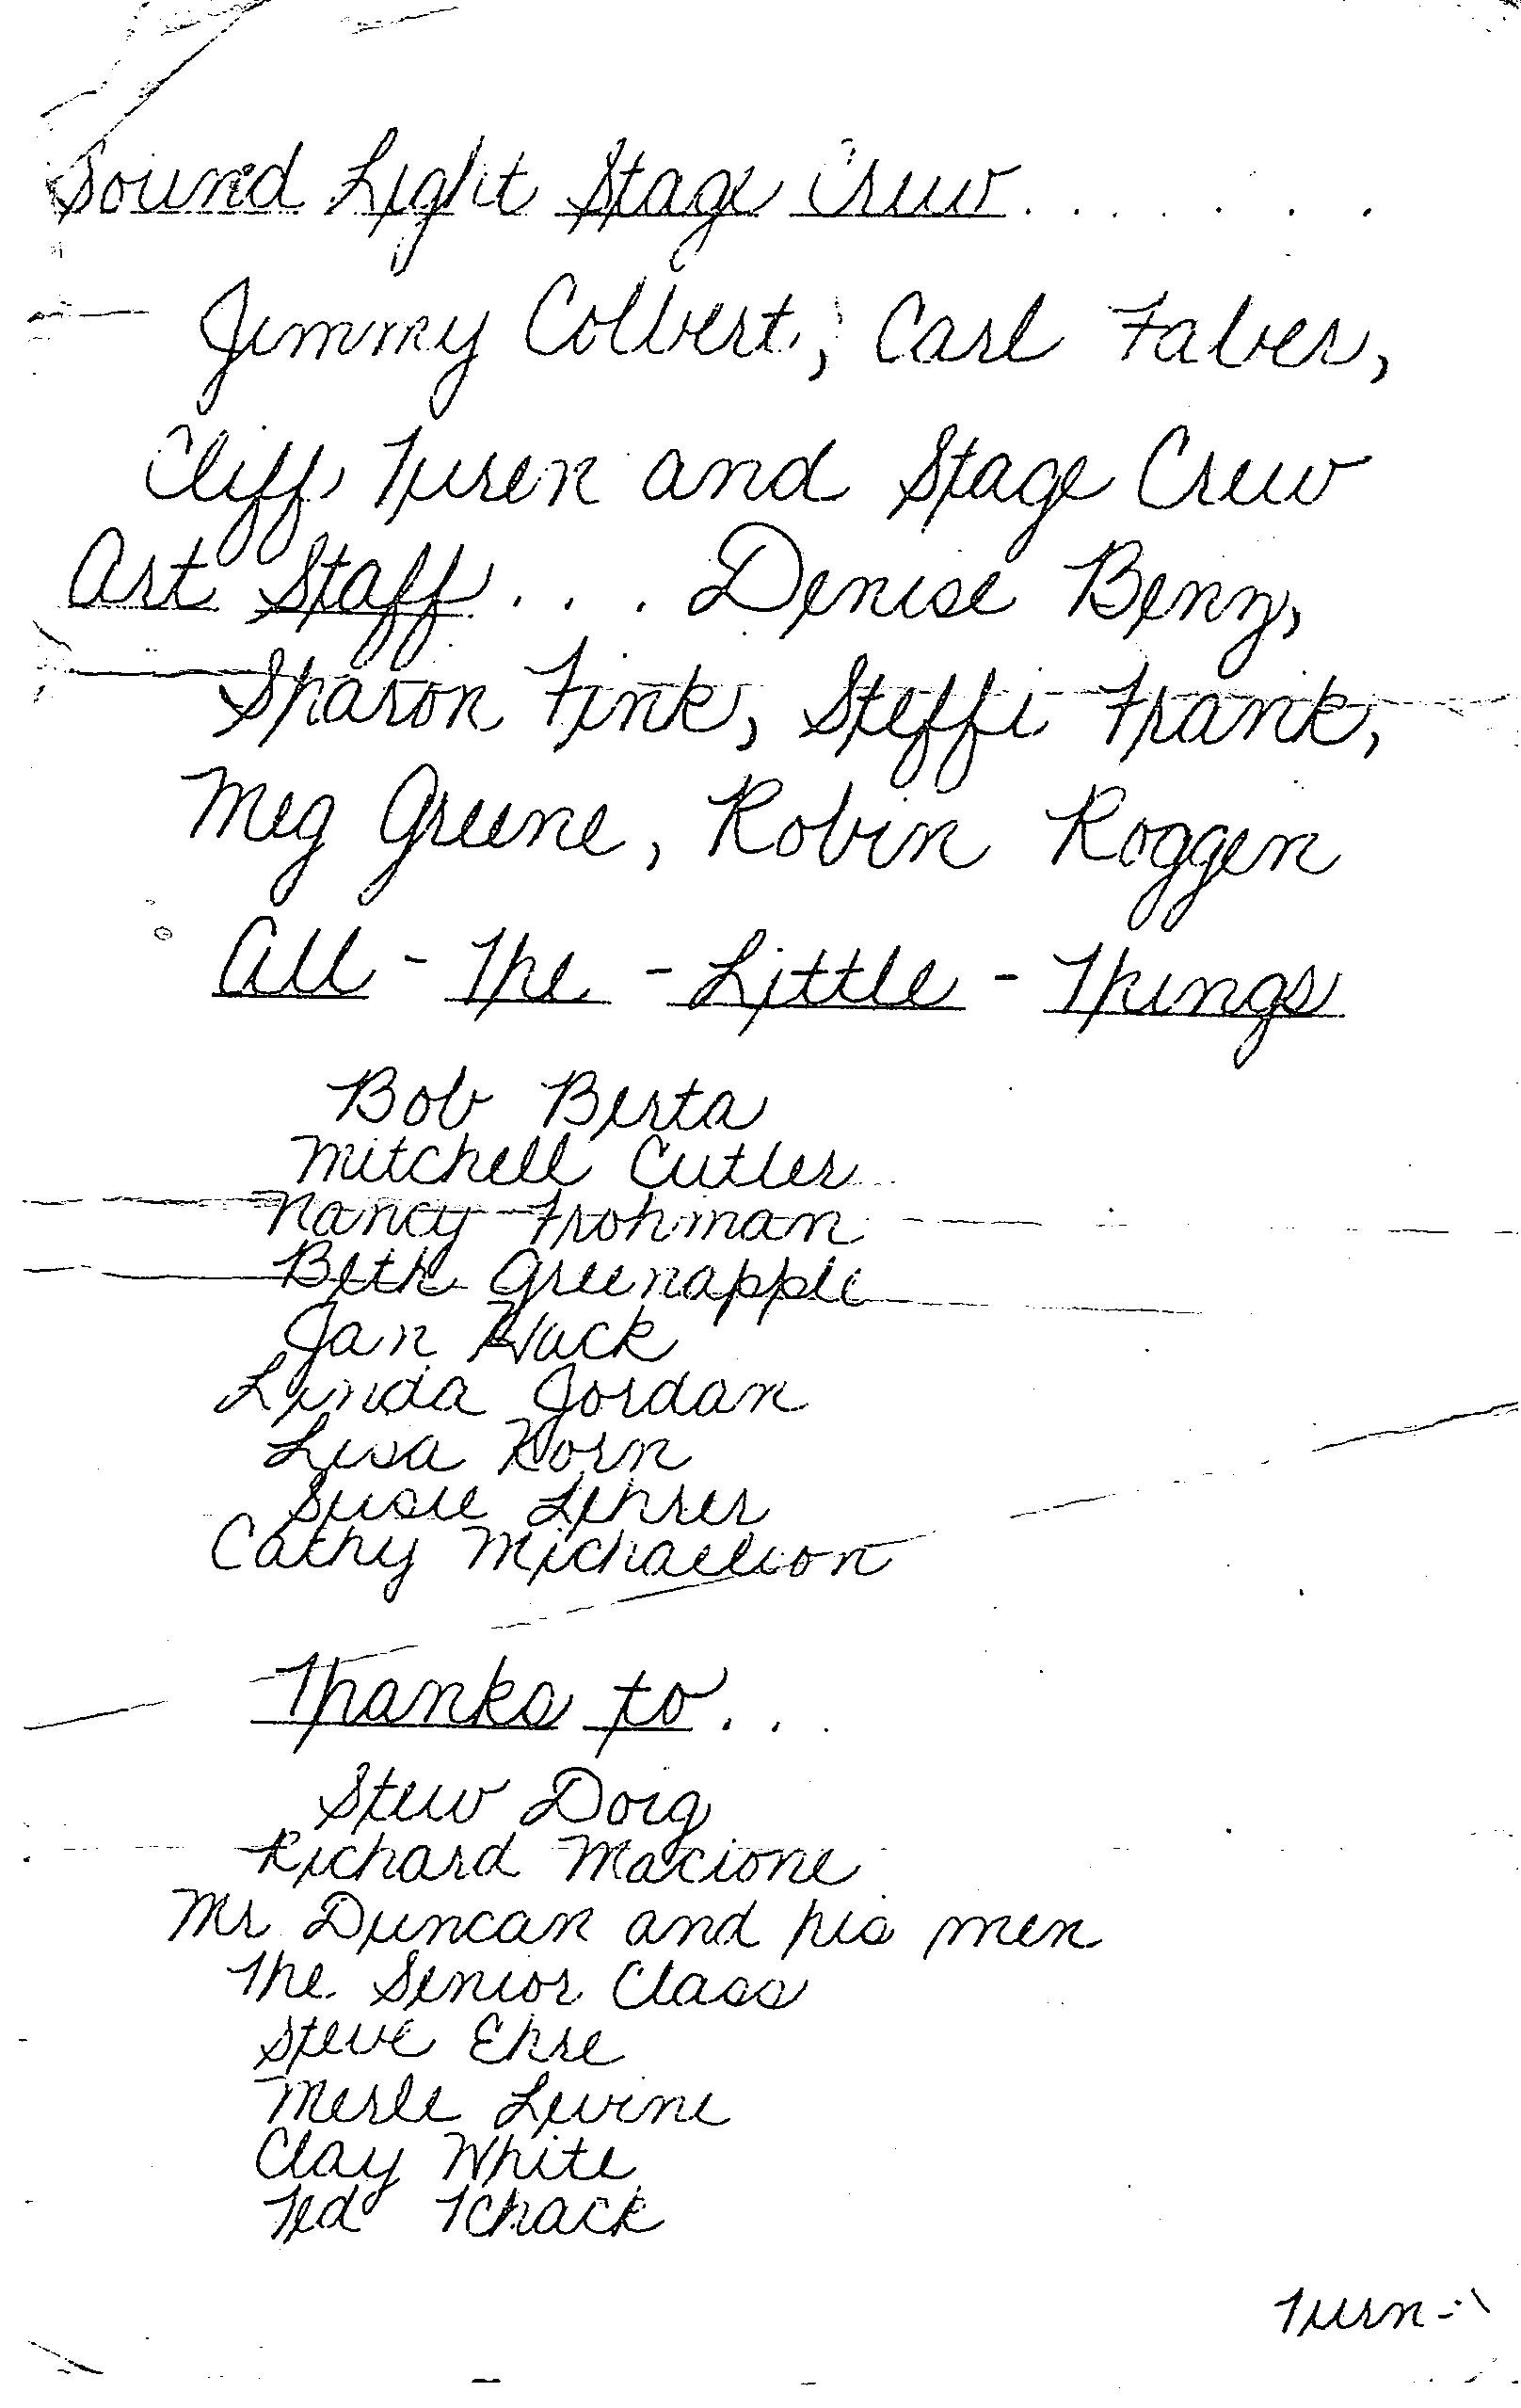 Sound Light Stage Crew.......
Jimmy Colbert, Carl Faber,
Cliff Turen and Stage Crew
Art Staff... Denise Benz,
Sharon Fink, Steffi Frank,
Meg Greene, Robin Roggen
All - The - Little - Things
Bob Berta
Mitchell Cutler
Nancy Frohman
Beth Greenapple
Jan Huck
Linda Jordan
Lisa Korn
Susie Lehrer
Cathy Michaelson
Thanks to...
Stew Doig
Richard Macione
Mr Duncan and his men
The Senior Class
Steve Ehre
Merle Levine
Clay White
Ted Tchack
Turn